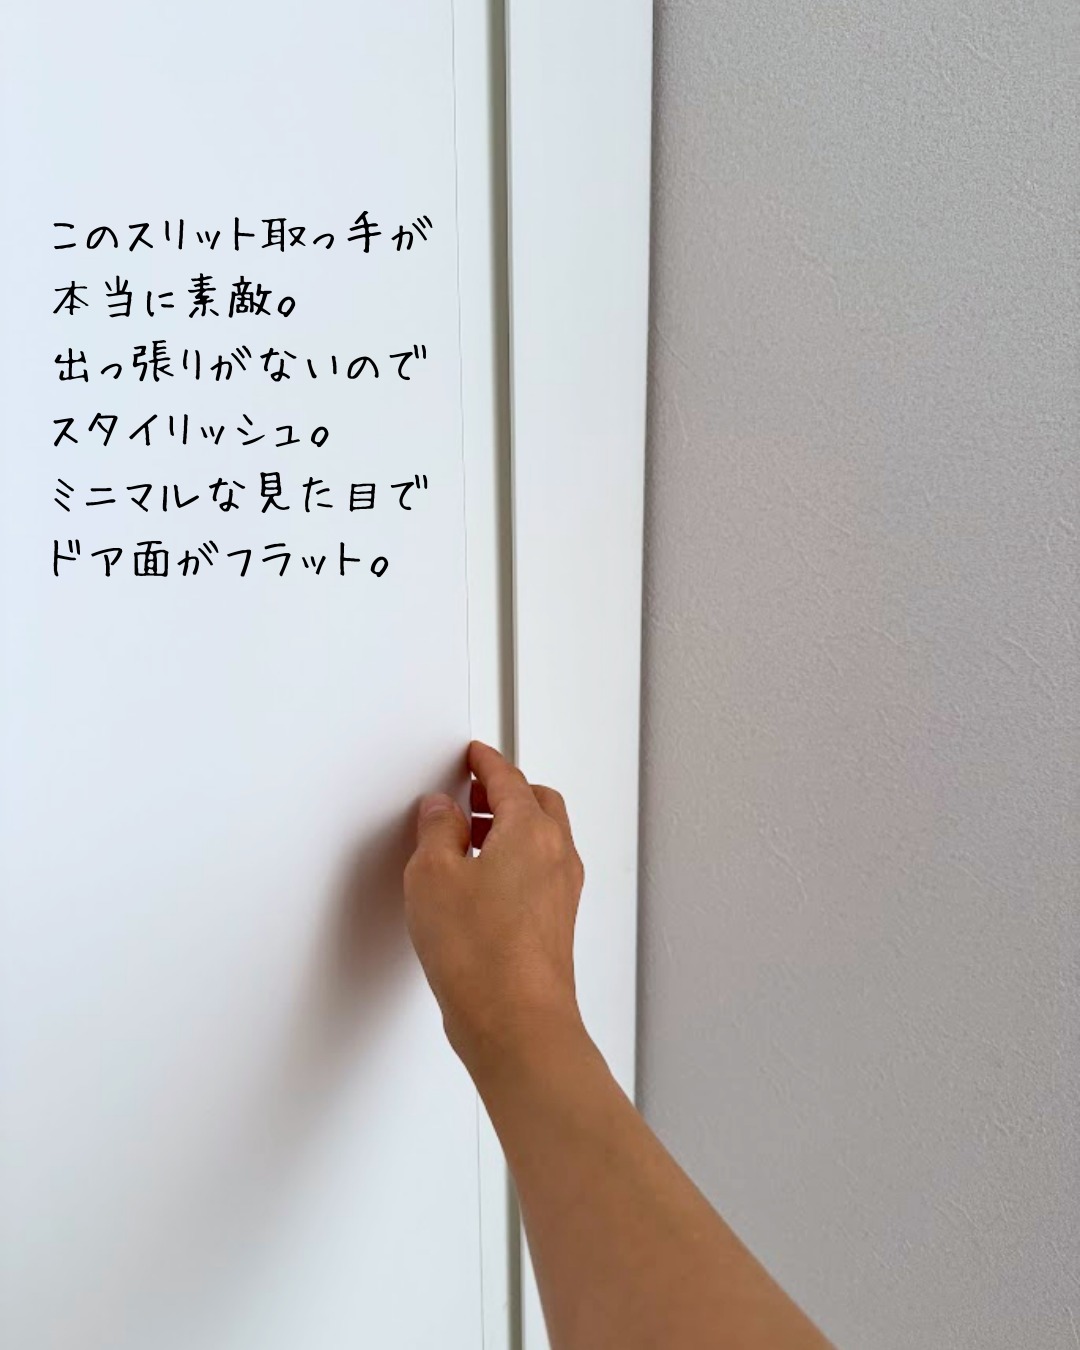 このスリット取っ手が
本当に素敵。
出っ張りがないので
スタイリッシュ。
ミニマルな見た目で
ドア面がフラット。